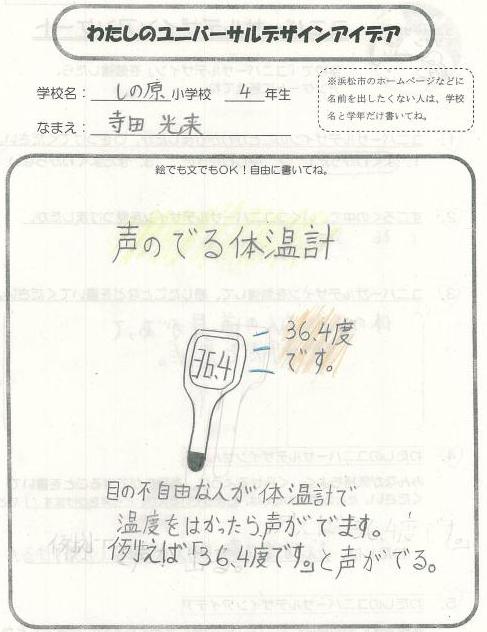 わたしのユニバーサルデザインアイデア
学校名：しの原小学校 4年生
なまえ：寺田 光来
※浜松市のホームページなどに
名前を出したくない人は、学校
名と学年だけ書いてね。
絵でも文でもOK！自由に書いてね。
声のでる体温計
36.4
36.4度
です。
目の不自由な人が体温計で
温度をはかったら声がでます。
例えば「36.4度です。」と声がでる。